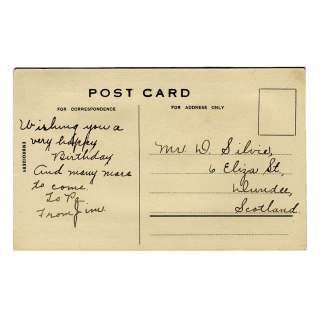 POST CARD
FOR CORRESPONDENCE
FOR ADDRESS ONLY
Wishing you a
very happy
Birthday
And many more
to come.
To Pa.
From Jim.
Mr. D. Silvie,
6 Eliza St,
Dundee,
Scotland.